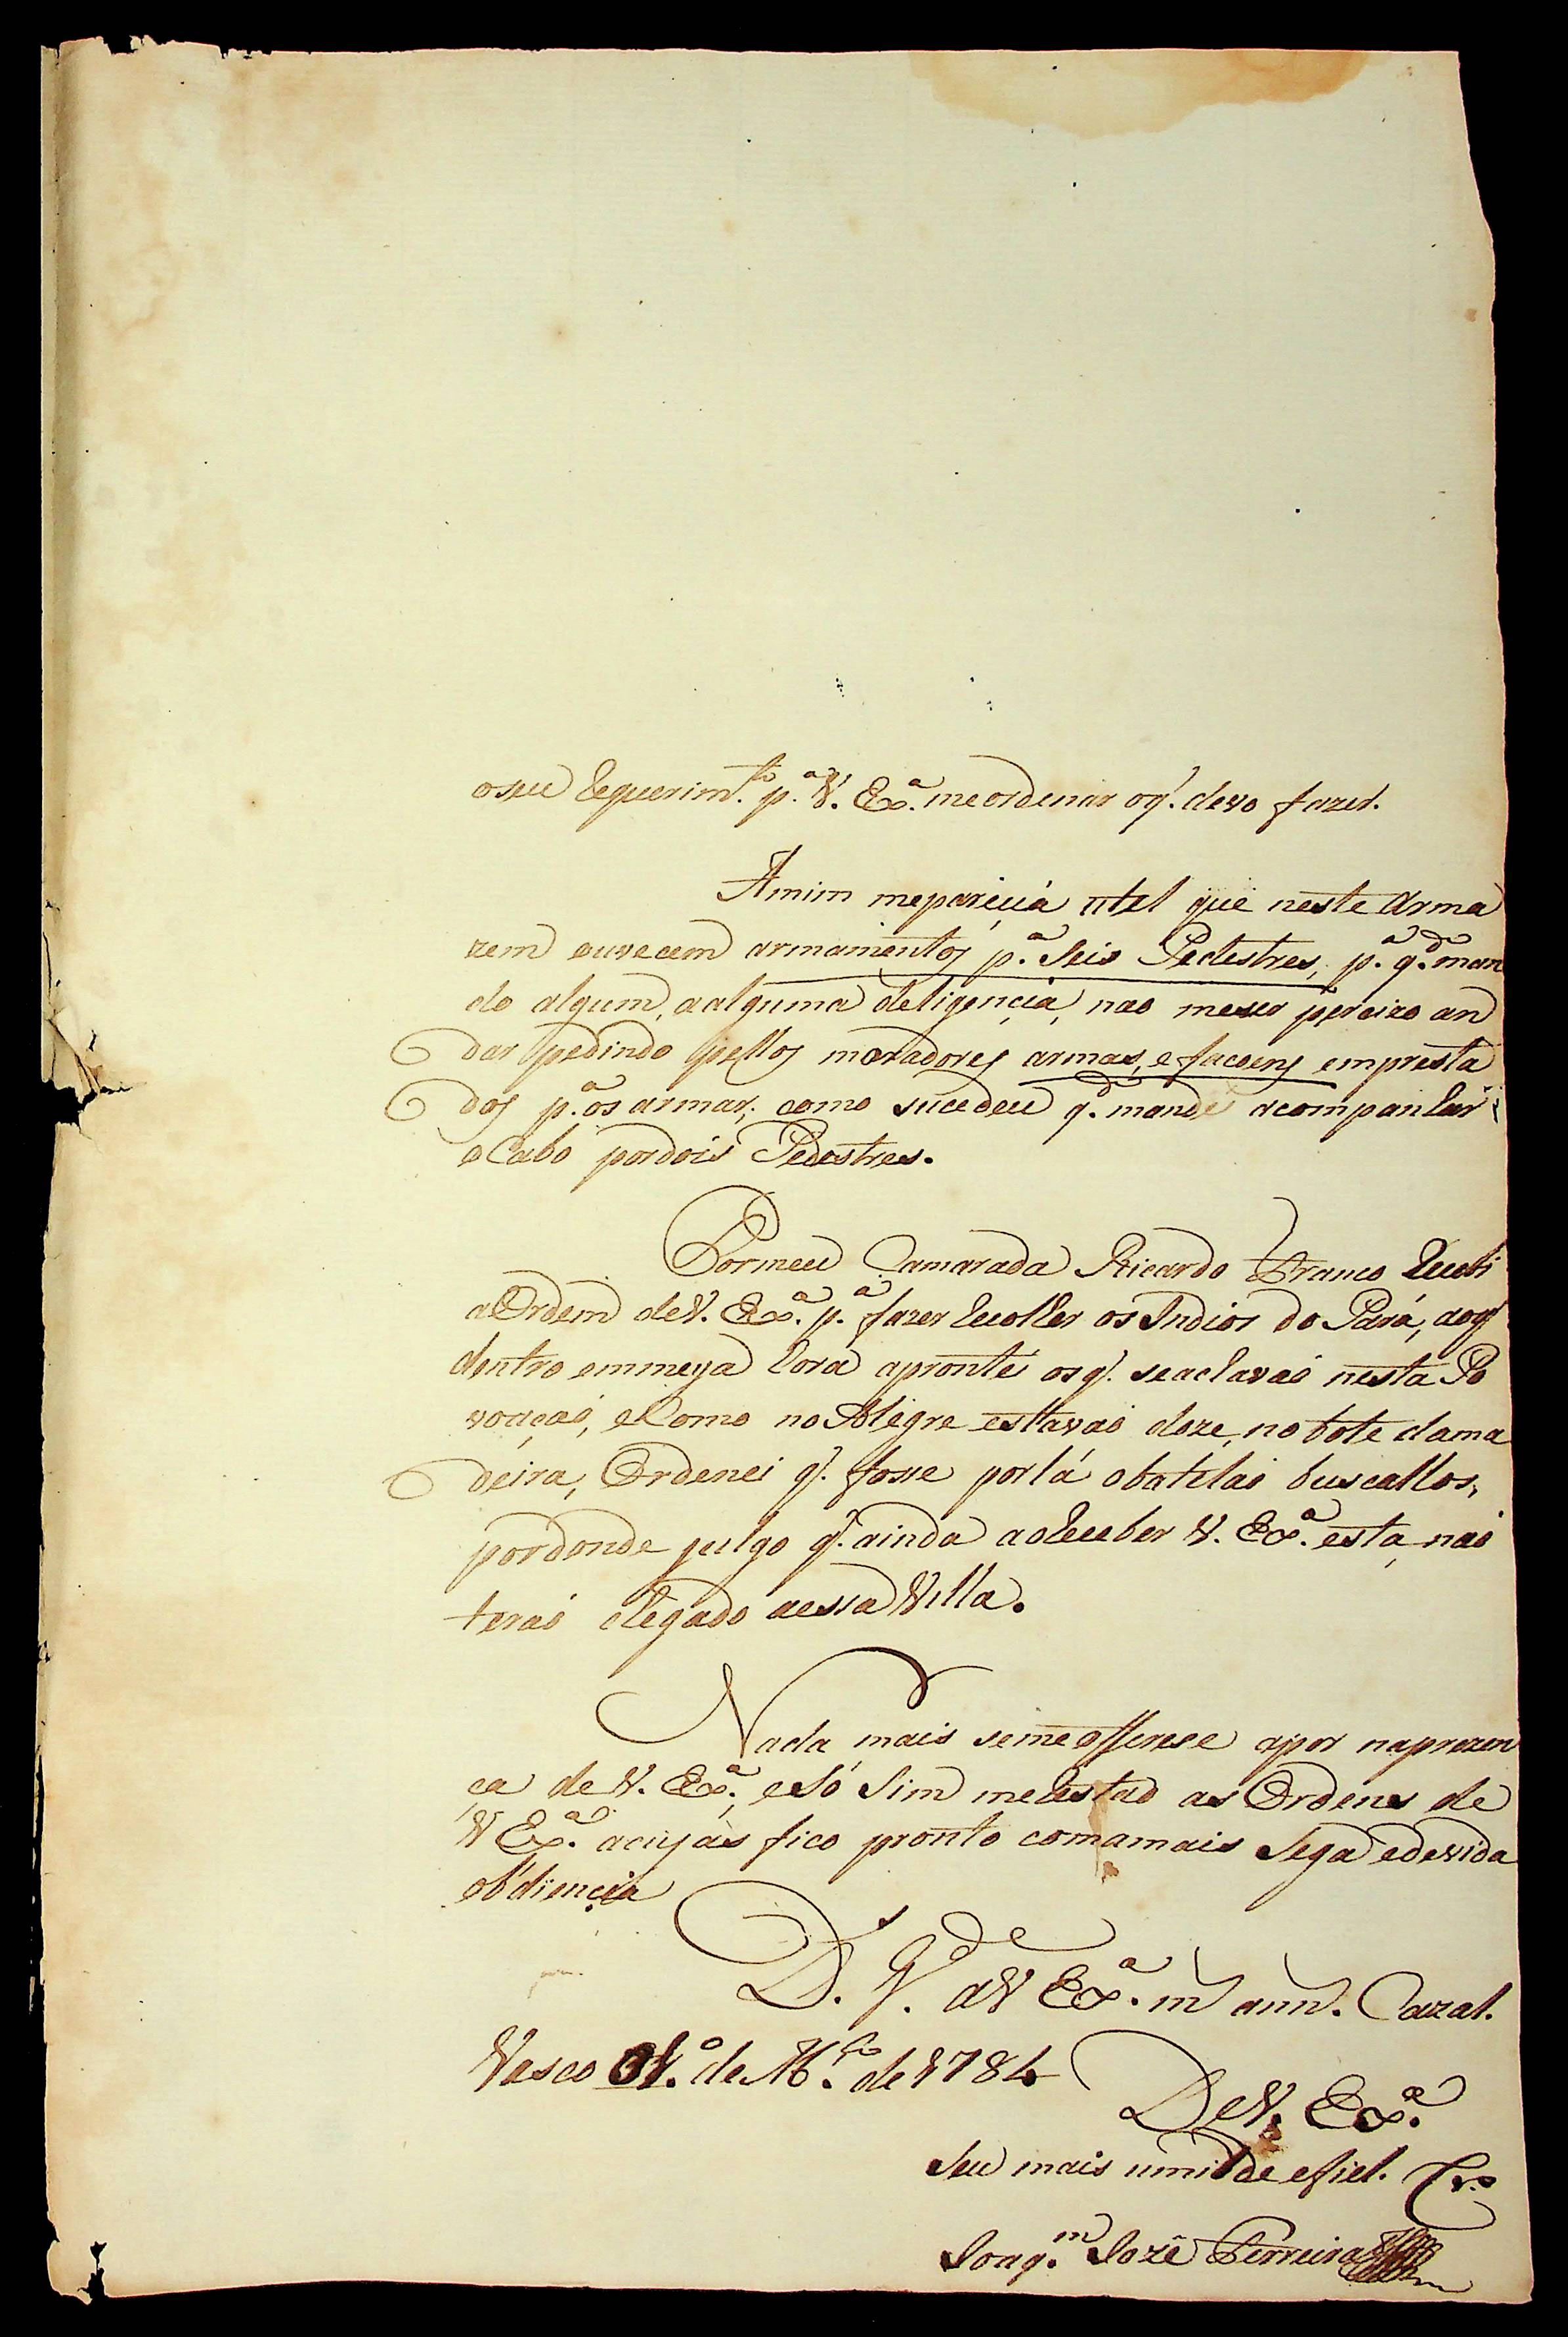 oseu Requerim.to p.a V. Ex.a me ordenar oq'. devo fazer.
Amim meparicia utel que neste Arma
zem ouvecem armamentos p.a Seis Pedestres, p.a q.do man
do algum, aalguma deligencia, nao meser percizo an
dar pedindo pellos moradores armas, e facoens empresta
dos p.a os armar; como sucedeu q.do mandei acompanhar
o Cabo pordois Pedestres.
Pormeu Camarada Ricardo Franco Recebi
aOrdem deV. Ex.a p.a fazer Recolher os Indios do Pará, aoq'
dentro emmeya hora apronte os q'. seachavaó nesta Po
voaçaó, eComo no Alegre estavaó doze, no bote dama
deira, Ordenei q'. fosse porlá obatelaó buscallos,
pordonde julgo q'. ainda aoReceber V. Ex.a esta, naó
teraó chegado aessa Villa.
Nada mais semeofferese apor naprezen
ca de V. Ex.a, eSó Sim meRestaõ as Ordens de
V Ex.a acujas fico pronto comamais Sega edevida
obdiencia
D.s G.de aV Ex.a m. ann. Cazal.
Vasco 01.o de M.ço de 1784
DeV. Ex.a
Seu mais umilde efiel. Cr.o
Joaq.m Jozé Ferreira